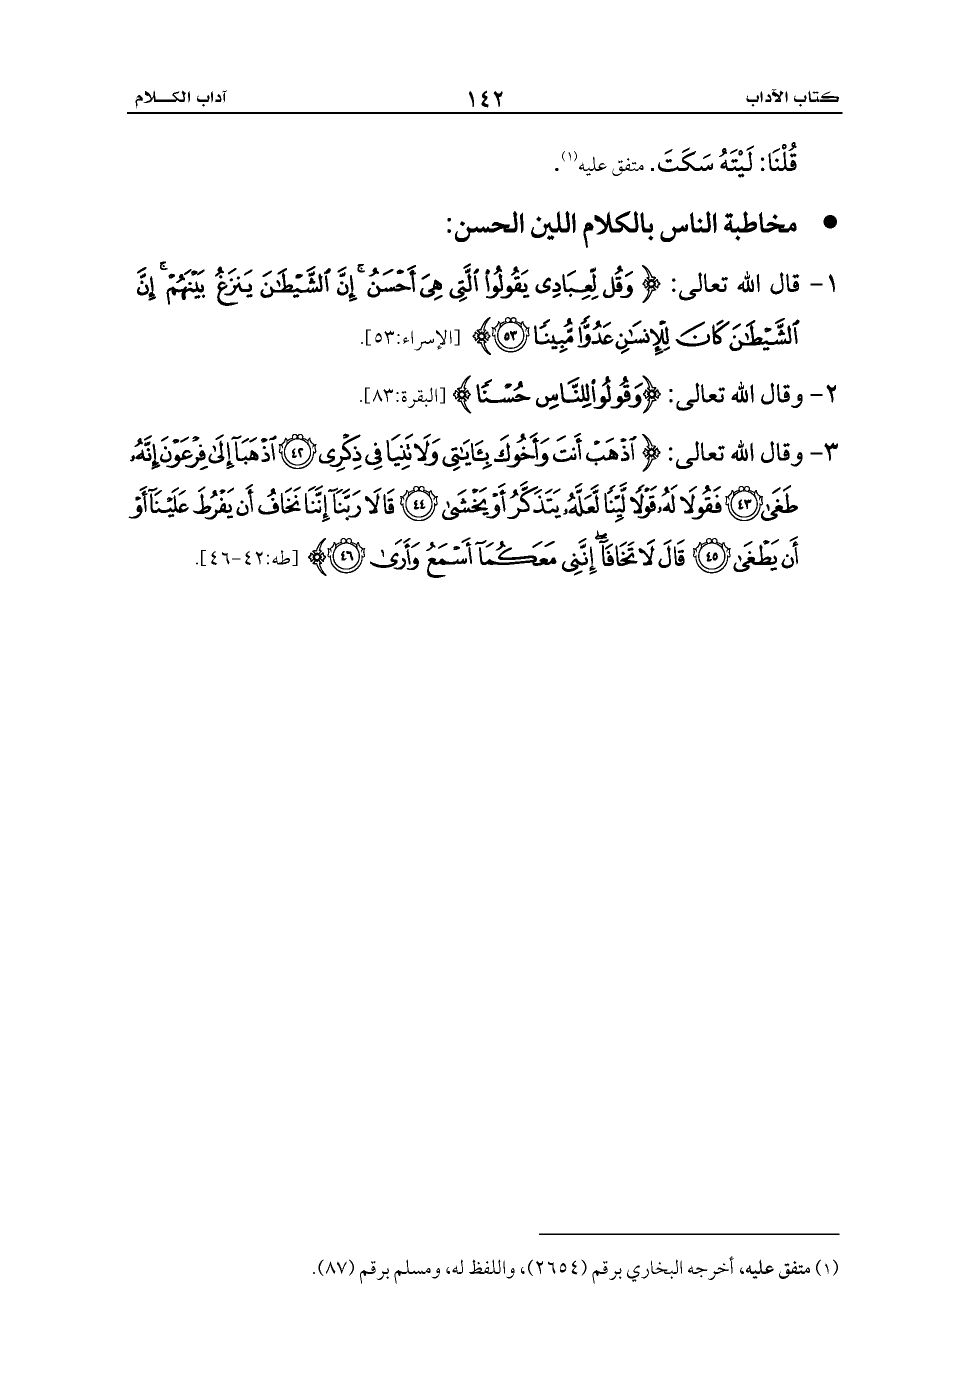 كتاب الآداب ١٤٢ آداب الكـــلام
قُلْنَا: لَيْتَهُ سَكَتَ. متفق عليه(١).
● مخاطبة الناس بالكلام اللين الحسن:
١- قال الله تعالى: ﴿وَقُل لِّعِبَادِى يَقُولُوا۟ ٱلَّتِى هِىَ أَحْسَنُ ۚ إِنَّ ٱلشَّيْطَـٰنَ يَنزَغُ بَيْنَهُمْ ۚ إِنَّ
ٱلشَّيْطَـٰنَ كَانَ لِلْإِنسَـٰنِ عَدُوًّا مُّبِينًا ٥٣﴾ [الإسراء:٥٣].
٢- وقال الله تعالى: ﴿وَقُولُوا۟ لِلنَّاسِ حُسْنًا﴾ [البقرة:٨٣].
٣- وقال الله تعالى: ﴿ٱذْهَبْ أَنتَ وَأَخُوكَ بِـَٔايَـٰتِى وَلَا تَنِيَا فِى ذِكْرِى ٤٢ ٱذْهَبَآ إِلَىٰ فِرْعَوْنَ إِنَّهُۥ
طَغَىٰ ٤٣ فَقُولَا لَهُۥ قَوْلًا لَّيِّنًا لَّعَلَّهُۥ يَتَذَكَّرُ أَوْ يَخْشَىٰ ٤٤ قَالَا رَبَّنَآ إِنَّنَا نَخَافُ أَن يَفْرُطَ عَلَيْنَآ أَوْ
أَن يَطْغَىٰ ٤٥ قَالَ لَا تَخَافَآ ۖ إِنَّنِى مَعَكُمَآ أَسْمَعُ وَأَرَىٰ ٤٦﴾ [طه:٤٢-٤٦].
(١) متفق عليه، أخرجه البخاري برقم (٢٦٥٤)، واللفظ له، ومسلم برقم (٨٧).